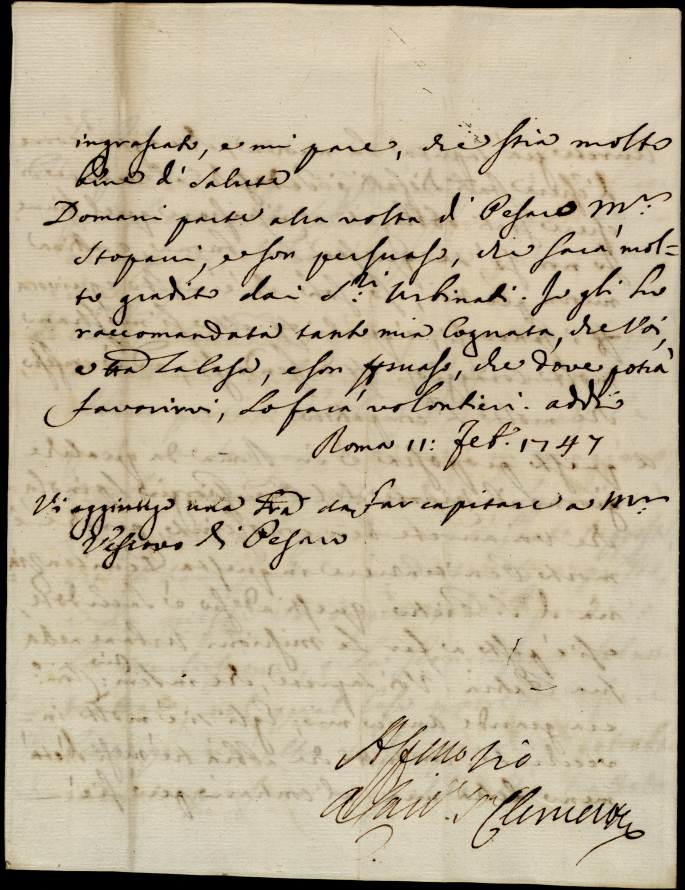 ingrassato, e mi pare, che stia molto
bene di salute
Domani parte alla volta di Pesaro Mr.
Stopani, e son persuaso, che sarà mol=
to gradito dai Sri. Urbinati. Io gli ho
raccomandata tanto mia Cognata, che Voi,
e tta la Casa, e son psuaso, che dove potrà
favorirvi, lo farà volontieri. addio
Roma 11: Feb. 1747
Vi aggiungo una da far capitare a Mr.
Vescovo di Pesaro
Affmo Zio
Clemente